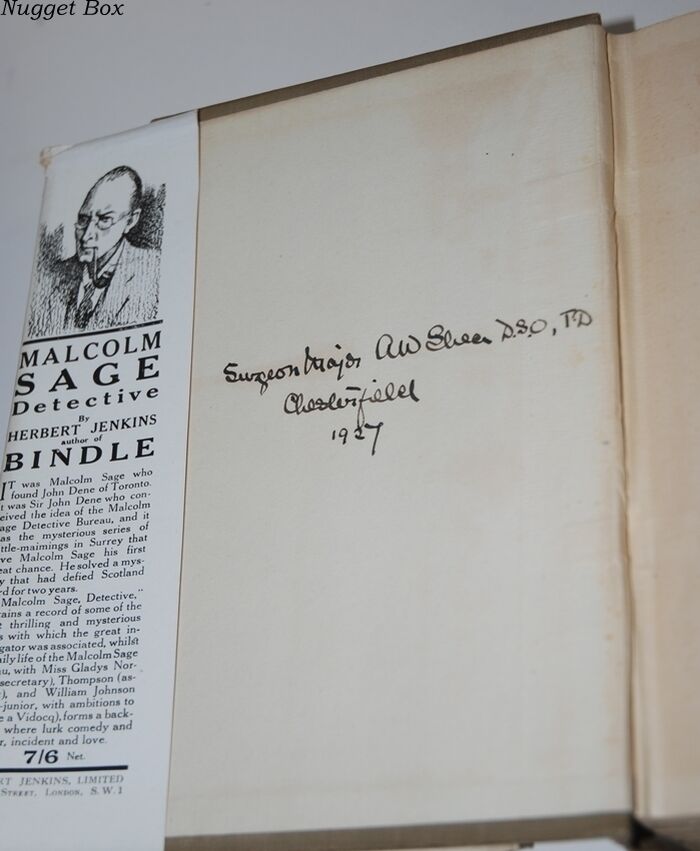 Nugget Box
MALCOLM
SAGE
Detective
By
HERBERT JENKINS
author of
BINDLE
IT was Malcolm Sage who
found John Dene of Toronto.
t was Sir John Dene who con-
eived the idea of the Malcolm
age Detective Bureau, and it
as the mysterious series of
ttle-maimings in Surrey that
ve Malcolm Sage his first
eat chance. He solved a mys-
y that had defied Scotland
rd for two years.
Malcolm Sage, Detective,"
ains a record of some of the
t thrilling and mysterious
s with which the great in-
gator was associated, whilst
aily life of the Malcolm Sage
au, with Miss Gladys Nor-
secretary), Thompson (as-
), and William Johnson
-junior, with ambitions to
e a Vidocq), forms a back-
where lurk comedy and
r, incident and love.
7/6 Net.
RT JENKINS, LIMITED
STREET, LONDON, S.W.1
Surgeon Major AW Shea D.S.O, T.D
Chesterfield
1927